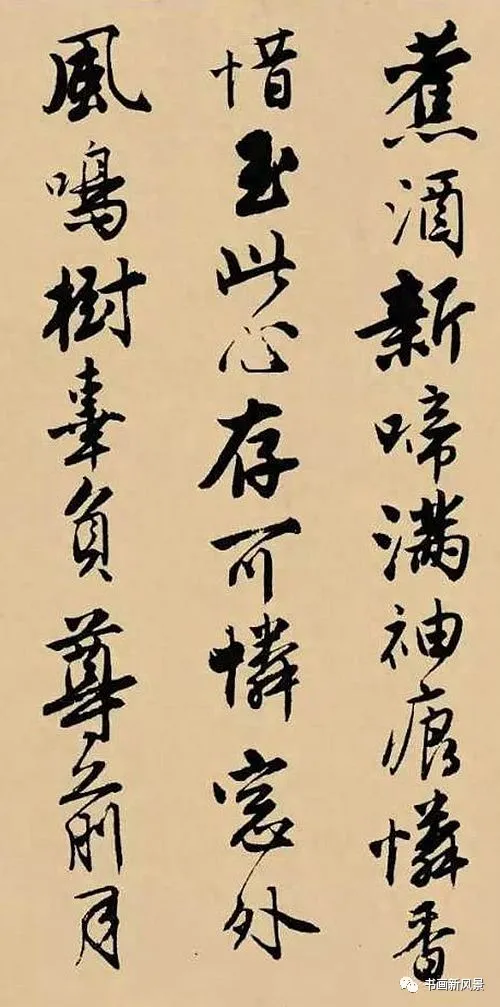 蕉酒新啼滿袖痕憐香
惜玉此心存可憐窓外
風鳴樹辜負尊前月
书画新风景